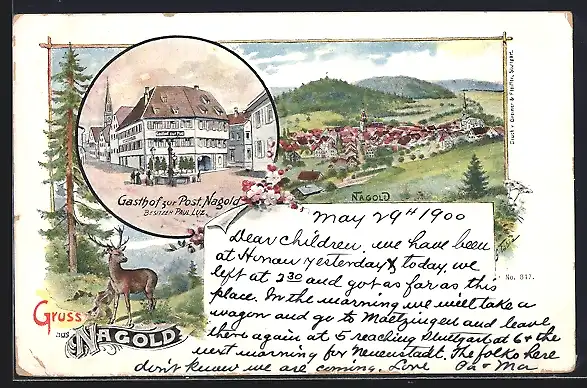 Gasthof zur Post
Gasthof zur Post, Nagold
BESITZER PAUL LUZ.
NAGOLD
Druck v. Greiner & Pfeiffer, Stuttgart.
No. 847.
Gruss
aus
NAGOLD
May 29th 1900
Dear children, we have been
at Hirsau yesterday & today, we
left at 2 30 and got as far as this
place. In the morning we will take a
wagon and go to Maetzingen and leave
there again at 5 reaching Stuttgart at 6 & the
next morning for Neuenstadt. The folks here
don't know we are coming. Love Pa & Ma